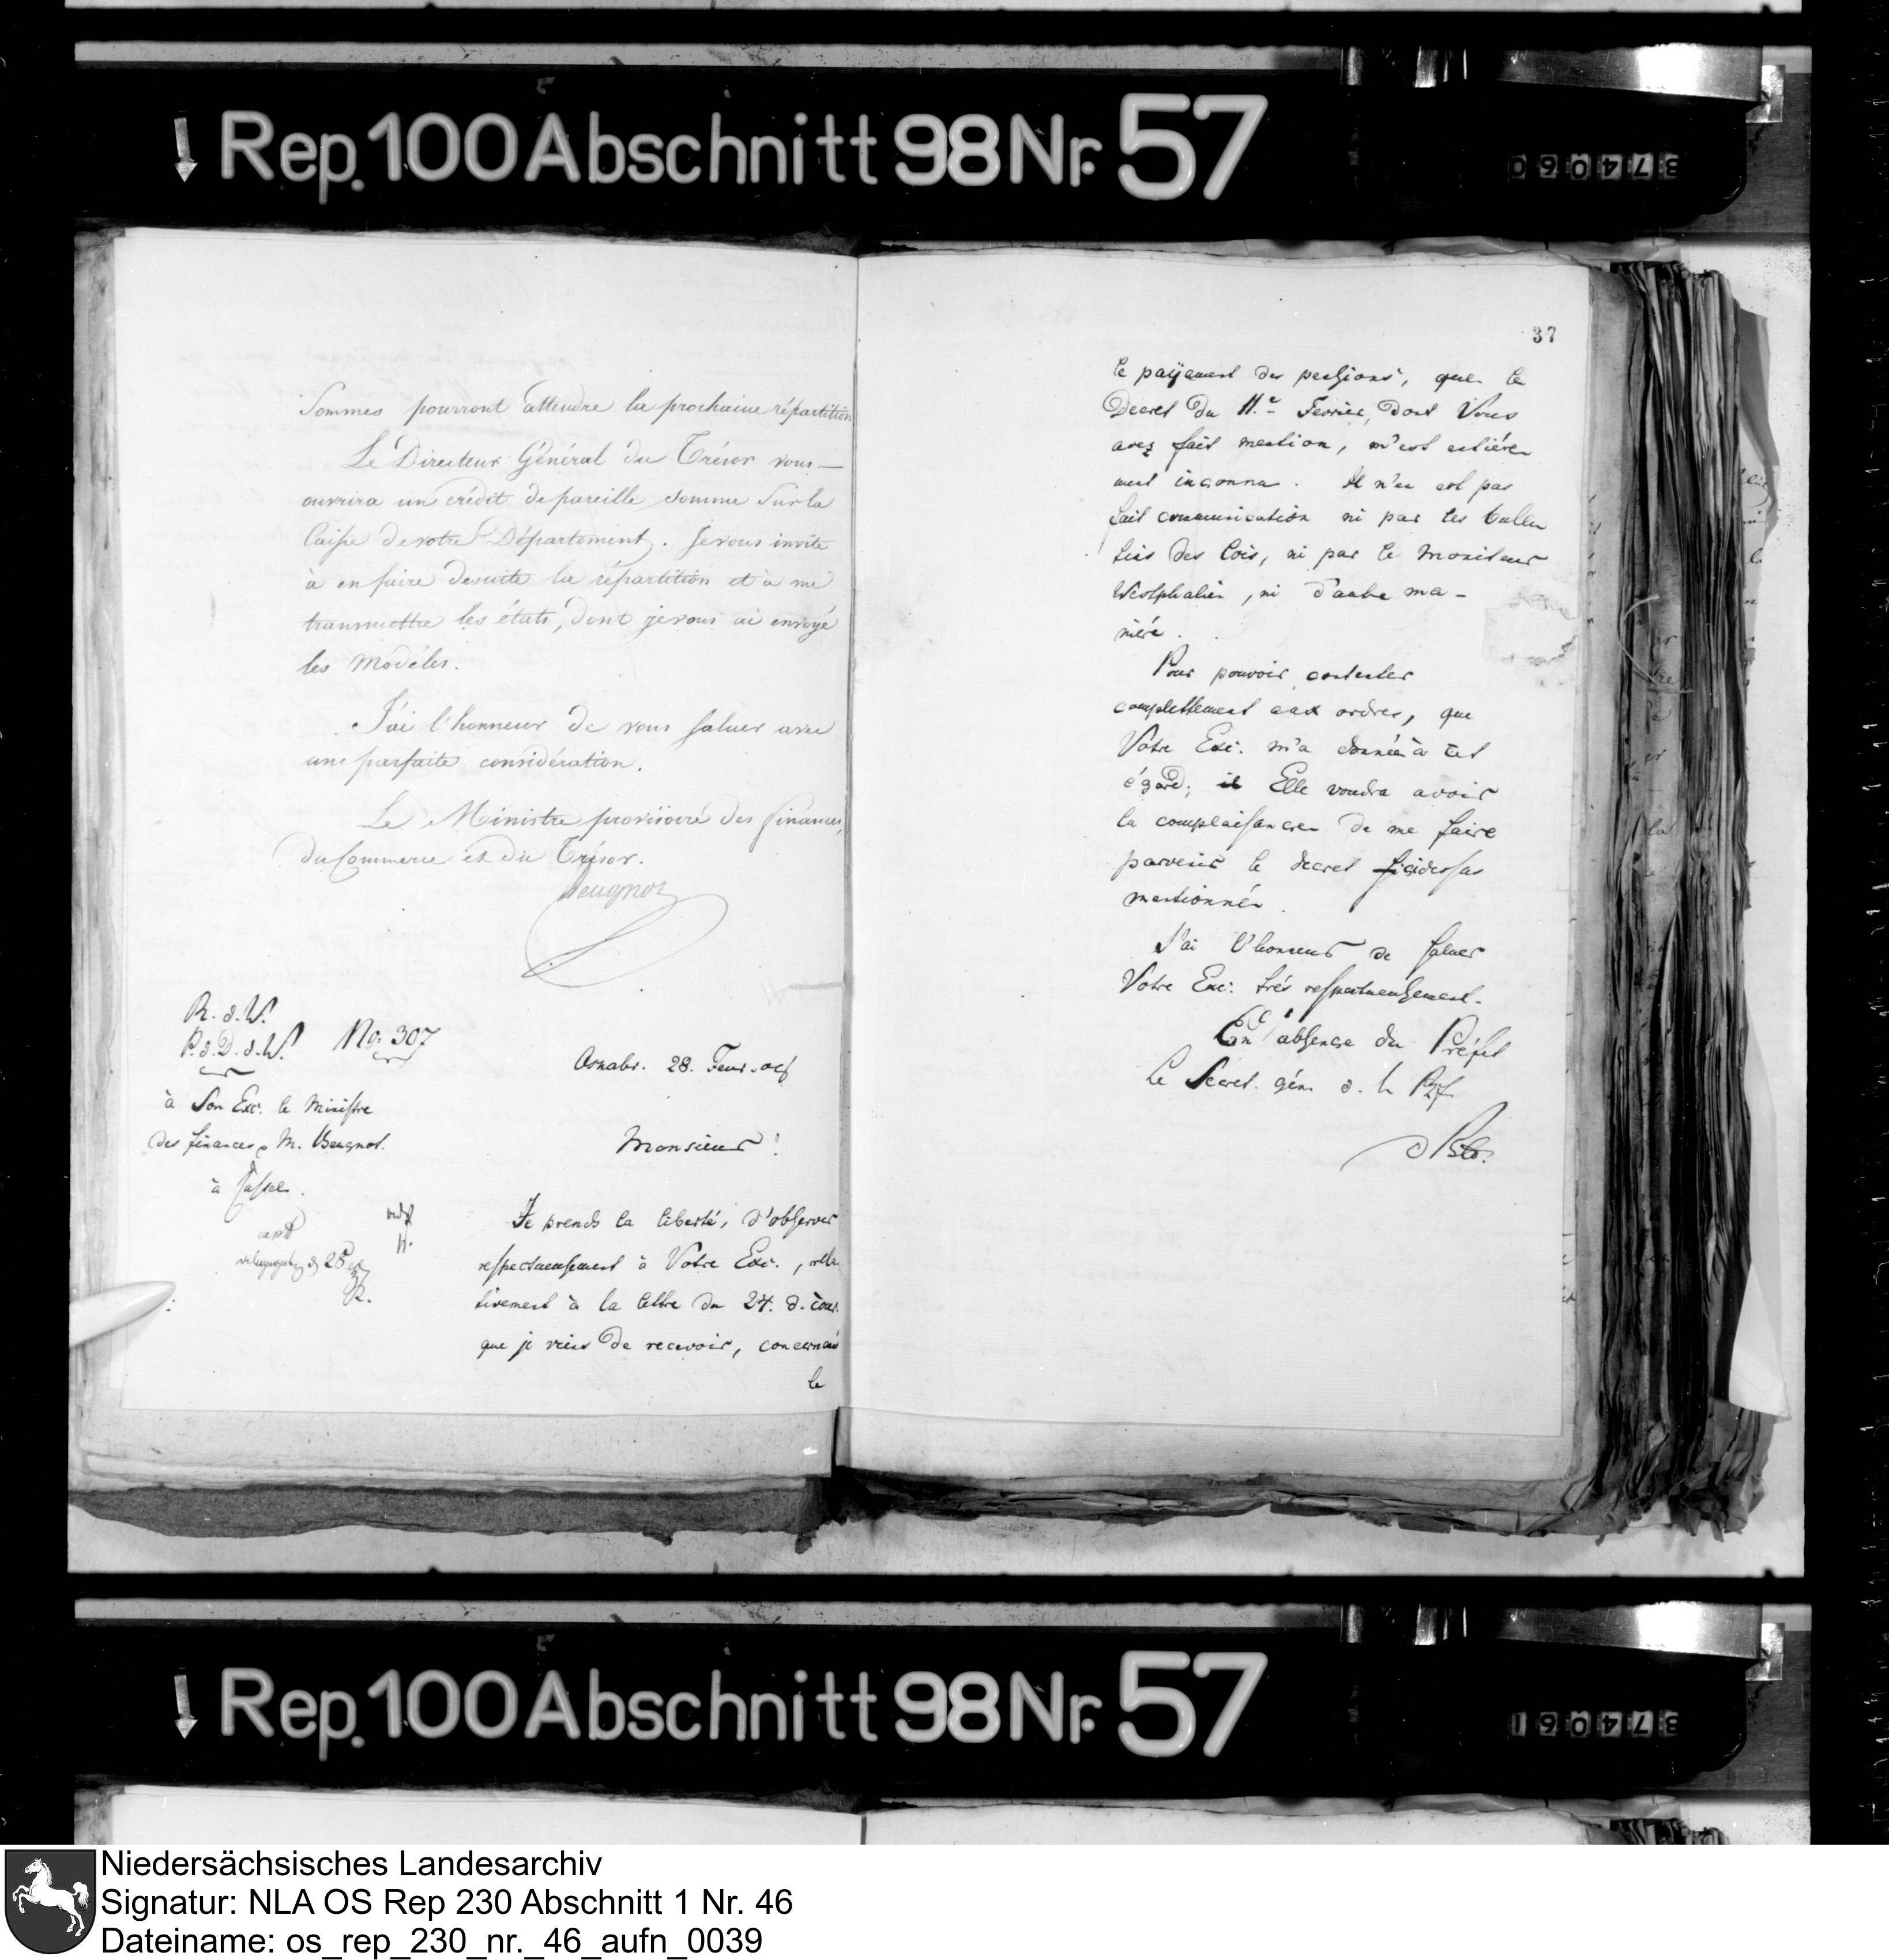 Rep. 100 Abschnitt 98 Nr. 57
374060
Sommes pourront attendre la prochaine répartition
Le Directeur Général du Trésor vous
ouvrira un crédit de pareille somme sur la
Caisse de votre Département. Je vous invite
à en faire desuite la répartition et à me
transmettre les états, dont je vous ai envoyé
les modèles.
J'ai l'honneur de vous saluer avec
une parfaite considération.
Le Ministre provisoire des finances,
du Commerce et du Trésor.
Beugnot
R. d. W.
P. d. D. d. W.
No. 307
Osnabr. 28. Fevr. 08
à Son Exc. le Ministre
des finances M. Beugnot.
à Cassel.
Monsieur!
Je prends la liberté, d'observer
respectueusement à Votre Exc., rela
tivement à la lettre du 24. d. cour.
que je viens de recevoir, concernant
le
37
le payement des pensions, que le
Decret du 11.e Fevrier, dont Vous
avez fait mention, m'est entiére
ment inconnu. Il n'en est pas
fait communication ni par les bulle
tins des lois, ni par le Moniteur
Westphalien, ni d'autre ma-
niére.
Pour pouvoir contenter
complettement aux ordres, que
Votre Exc. m'a donnée à cet
égard; Elle voudra avoir
la complaisance de me faire
parvenir le decret cidessus
mentionné.
J'ai l'honneur de saluer
Votre Exc. trés respectueusement.
En absence du Préfet
Le Secret. gén. d. l. Pref.
Rep. 100 Abschnitt 98 Nr. 57
374061
Niedersächsisches Landesarchiv
Signatur: NLA OS Rep 230 Abschnitt 1 Nr. 46
Dateiname: os_rep_230_nr._46_aufn_0039